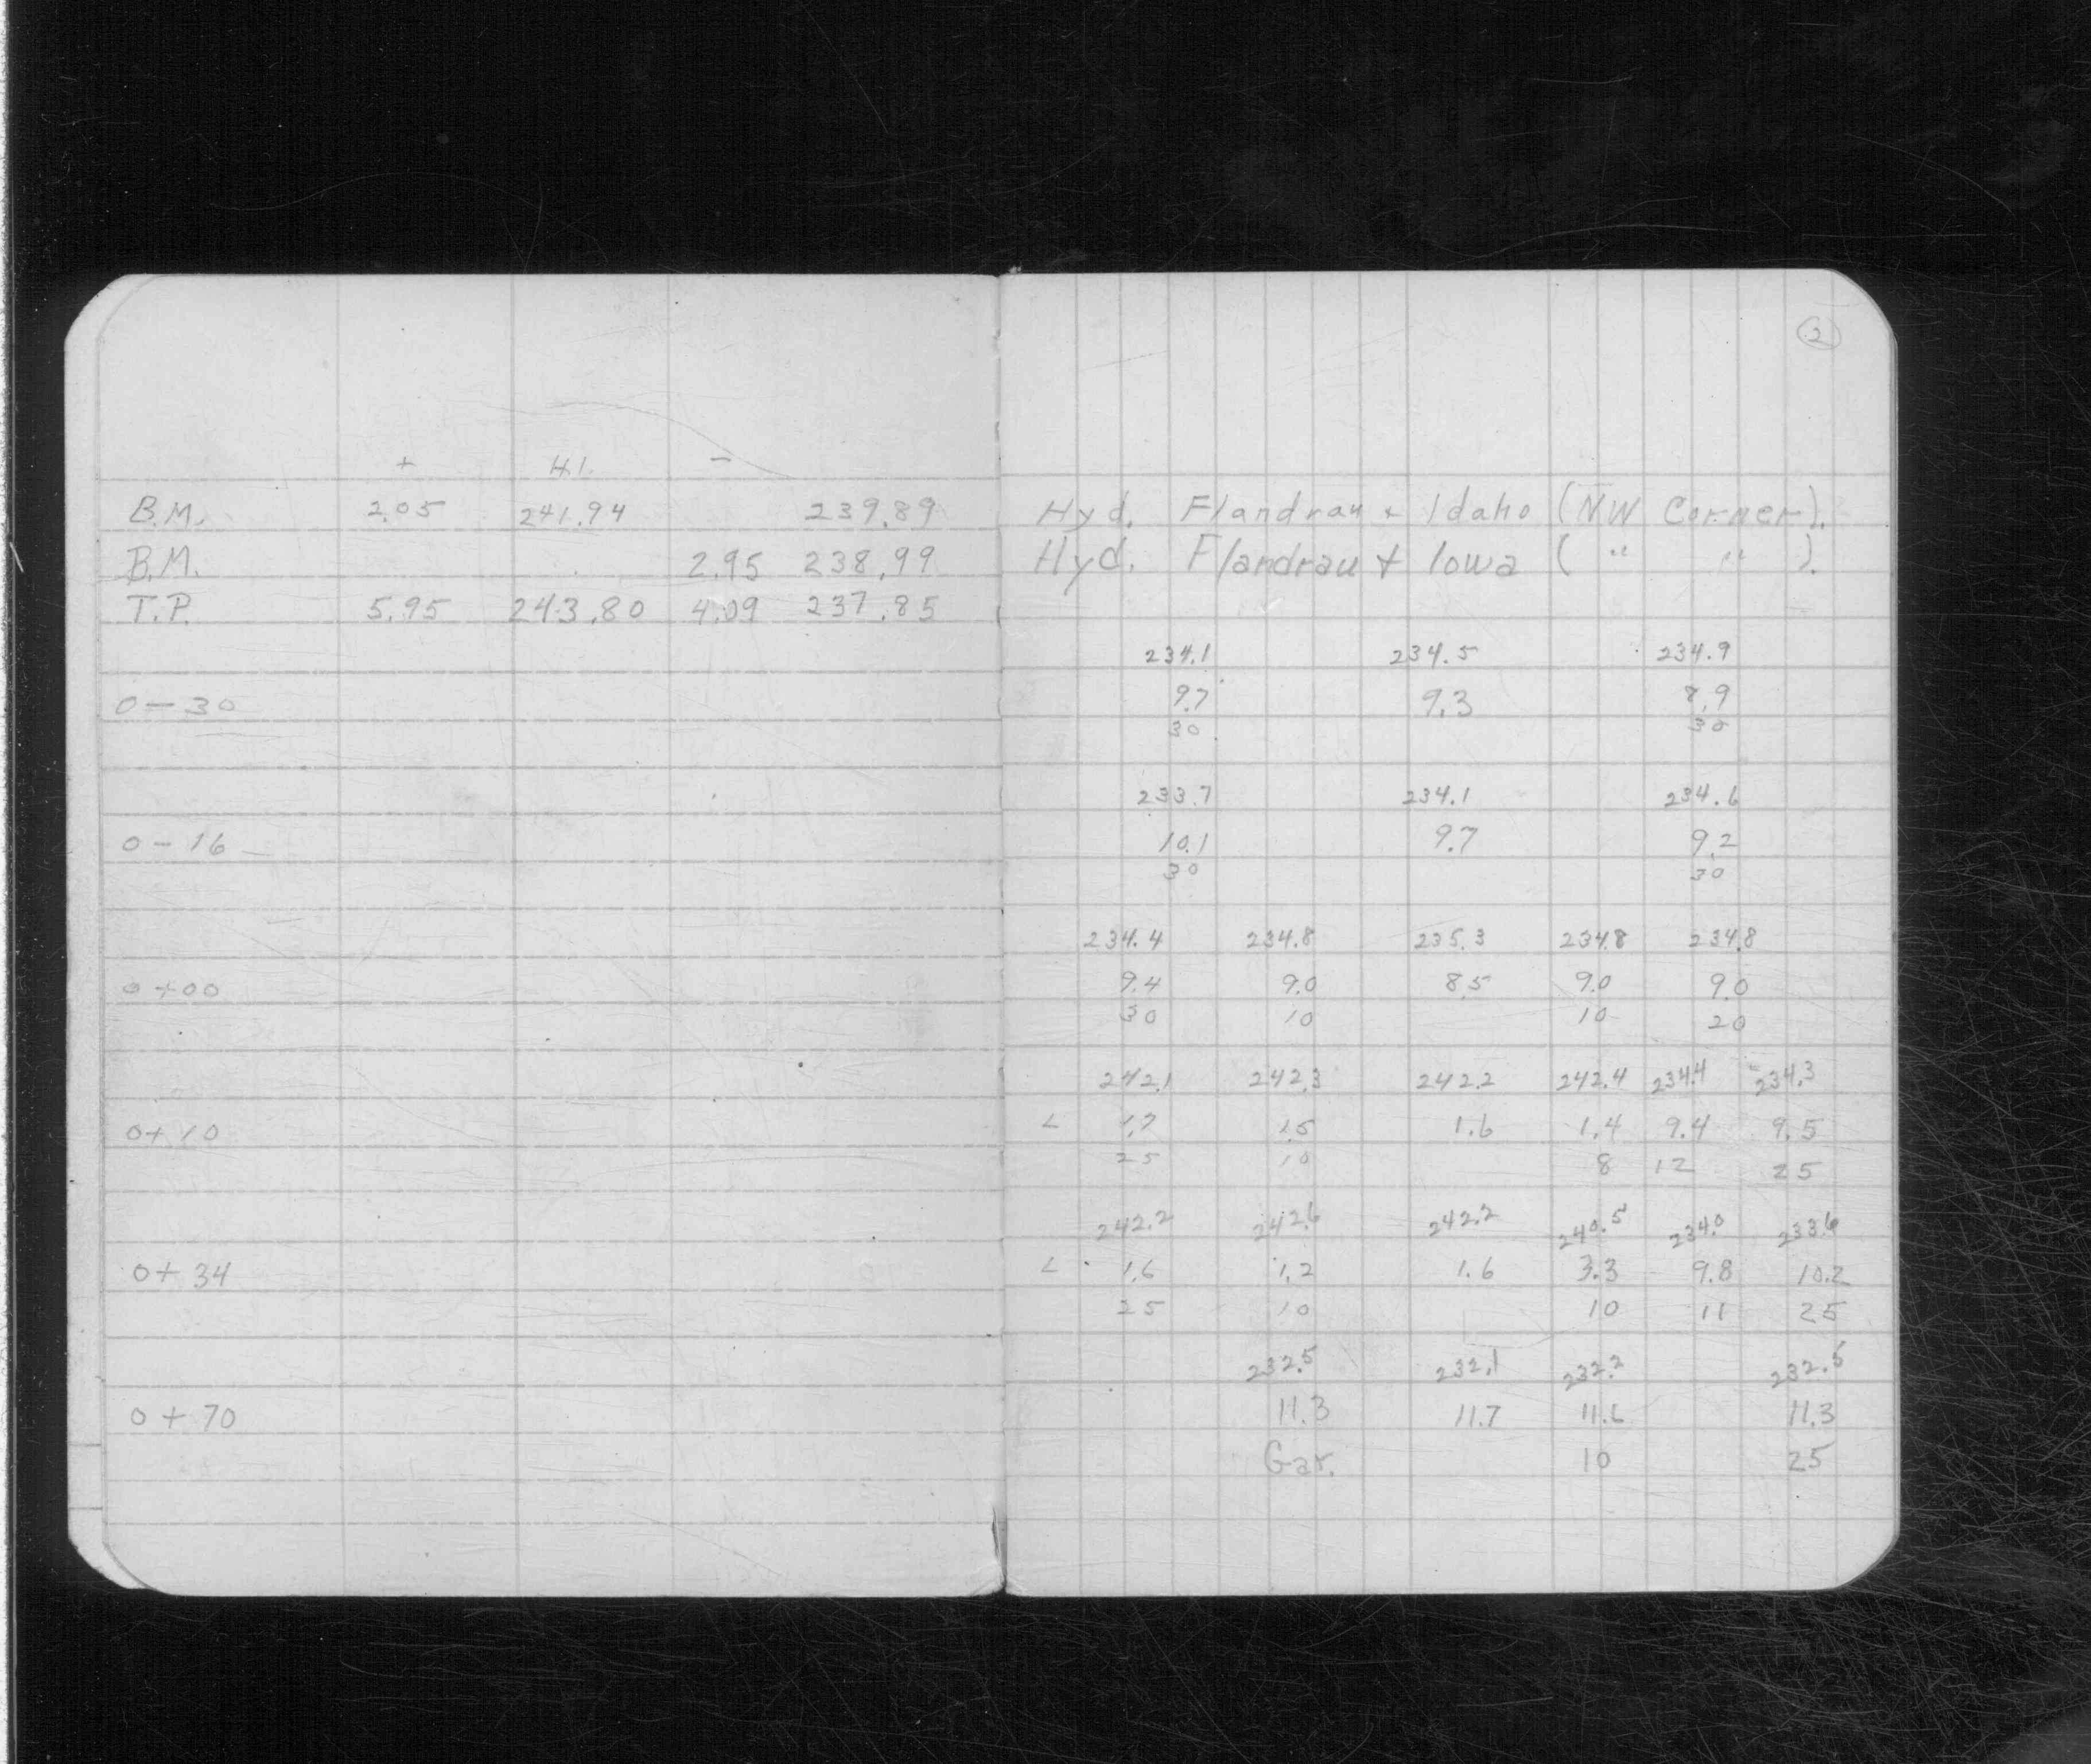 2
+ H.I. −
B.M. 2.05 241.94 239.89 Hyd. Flandrau + Idaho (NW Corner).
B.M. 2.95 238.99 Hyd. Flandrau + Iowa ( " " ).
T.P. 5.95 243.80 4.09 237.85
234.1 234.5 234.9
0 − 30 9.7 9.3 8.9
30 30
233.7 234.1 234.6
0 − 16 10.1 9.7 9.2
30 30
234.4 234.8 235.3 234.8 234.8
0 + 00 9.4 9.0 8.5 9.0 9.0
30 10 10 20
242.1 242.3 242.2 242.4 234.4 234.3
0 + 10 L 1.7 1.5 1.6 1.4 9.4 9.5
25 10 8 12 25
242.2 242.6 242.2 240.5 234.0 233.6
0 + 34 L 1.6 1.2 1.6 3.3 9.8 10.2
25 10 10 11 25
232.5 232.1 232.2 232.5
0 + 70 11.3 11.7 11.6 11.3
Gar. 10 25